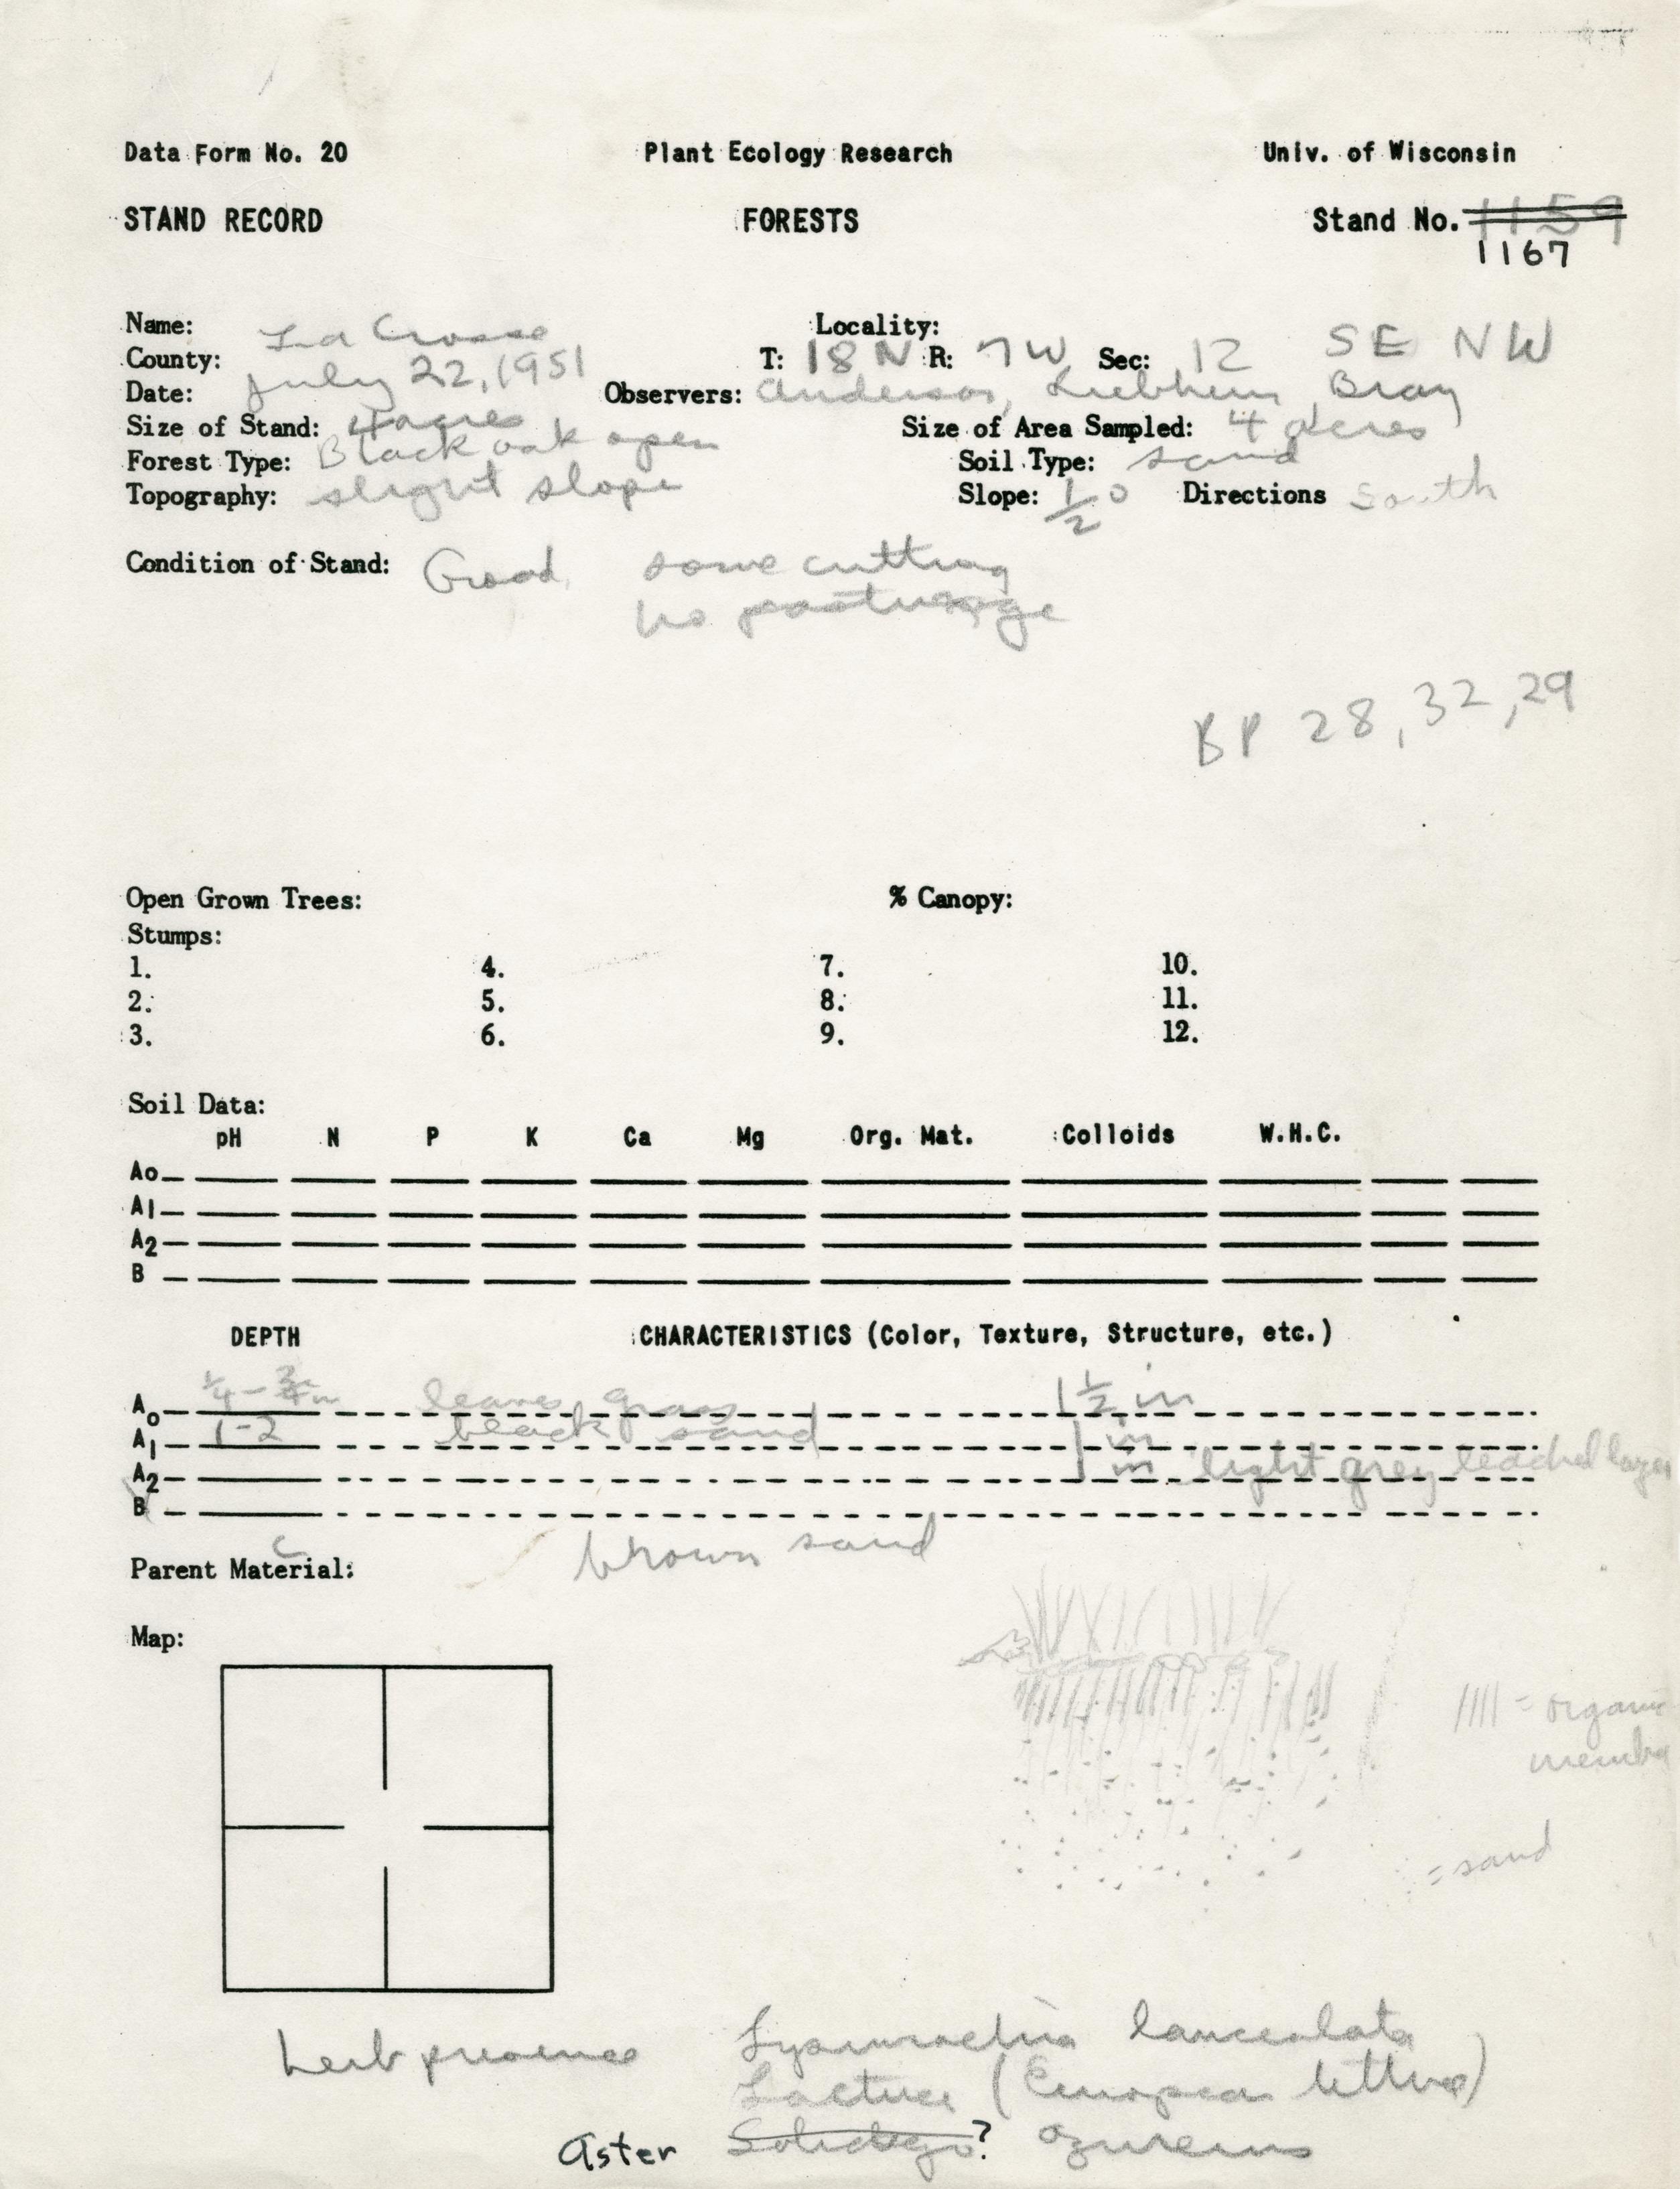 Data Form No. 20 Plant Ecology Research Univ. of Wisconsin
STAND RECORD FORESTS Stand No. 1159
1167
Name: Locality:
County: La Crosse T: 18 N R: 7 W Sec: 12 SE NW
Date: July 22, 1951 Observers: Anderson, Bray
Size of Stand: 4 acres Size of Area Sampled: 4 acres
Forest Type: Black oak open Soil Type: sand
Topography: slight slope Slope: 1/2° Directions South
Condition of Stand: Good some cutting
no pasturage
BP 28, 32, 29
Open Grown Trees: % Canopy:
Stumps:
1. 4. 7. 10.
2. 5. 8. 11.
3. 6. 9. 12.
Soil Data:
pH N P K Ca Mg Org. Mat. Colloids W.H.C.
Ao
A1
A2
B
DEPTH CHARACTERISTICS (Color, Texture, Structure, etc.)
Ao 1/4 - 3/4 in leaves grass 1 1/2 in
A1 1-2 black sand 1 in
A2 1 in light grey leached layer
B
C brown sand
Parent Material:
Map:
//// = organic
= sand
herb presence Lysimachia lanceolata
Lactuca (European lettuce)
Aster Solidago? azureus